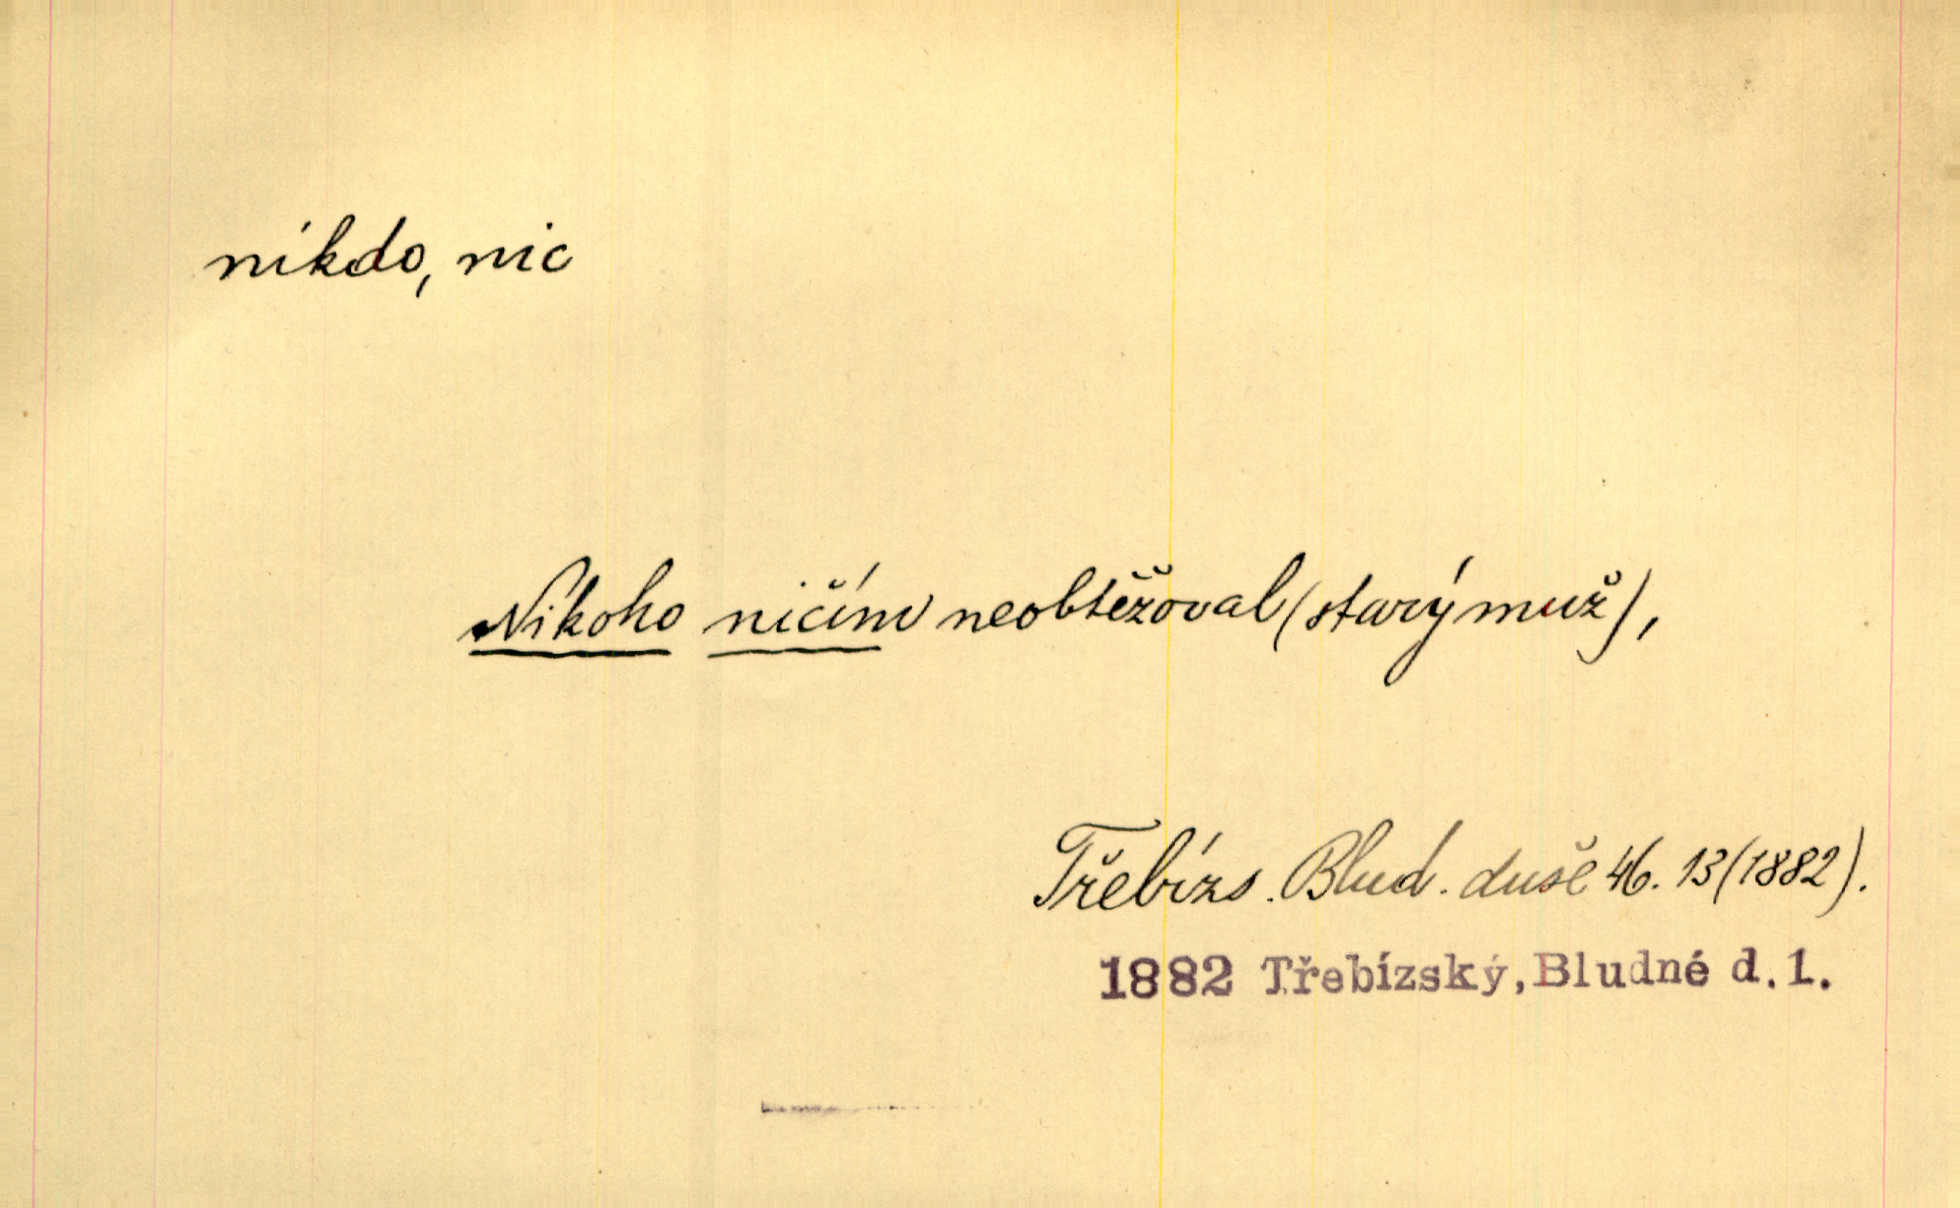 nikdo, nic
Nikoho ničím neobtěžoval (starý muž),
Třebízs. Blud. duše 46. 13 (1882).
1882 Třebízský, Bludné d.1.